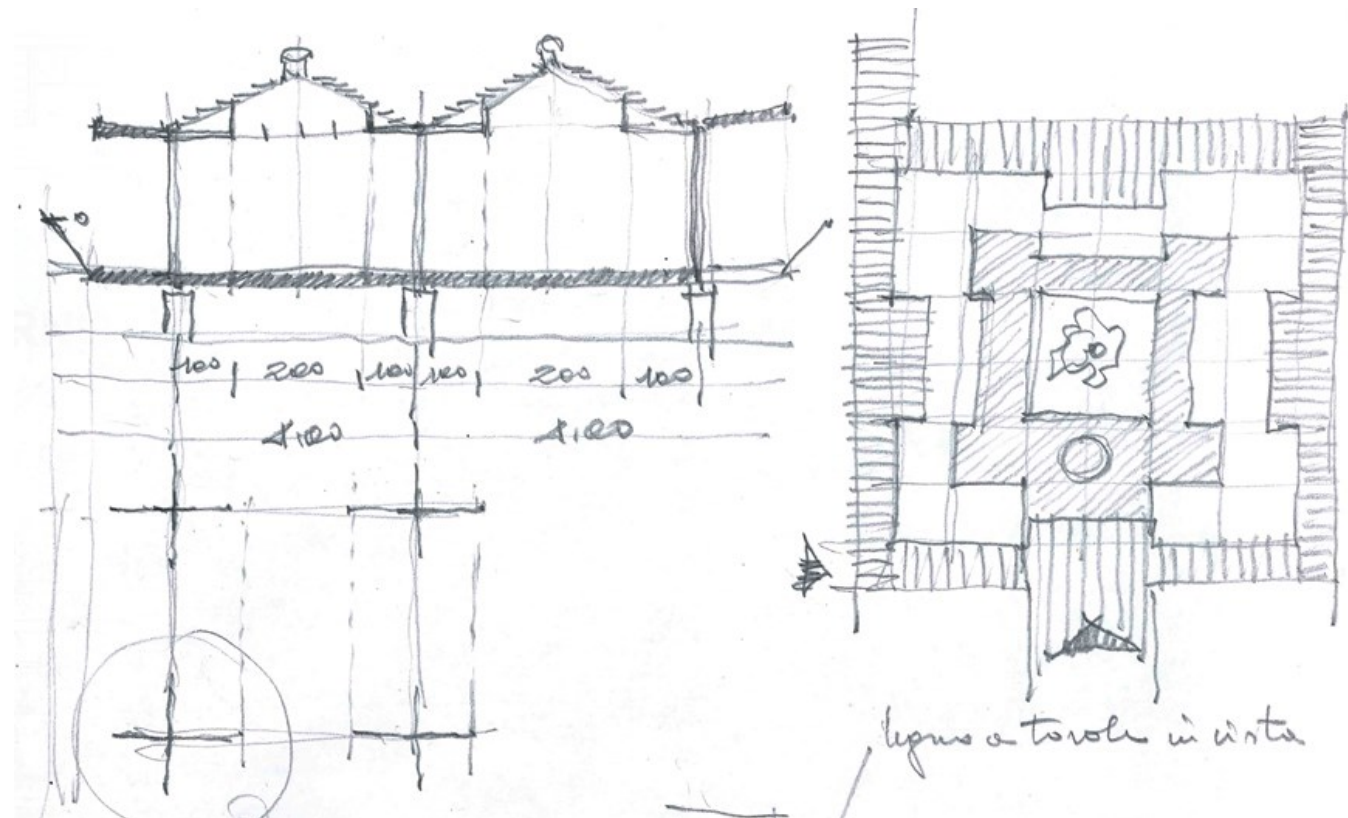 100 200 100 100 200 100
4,00 4,00
legno a tavole in vista